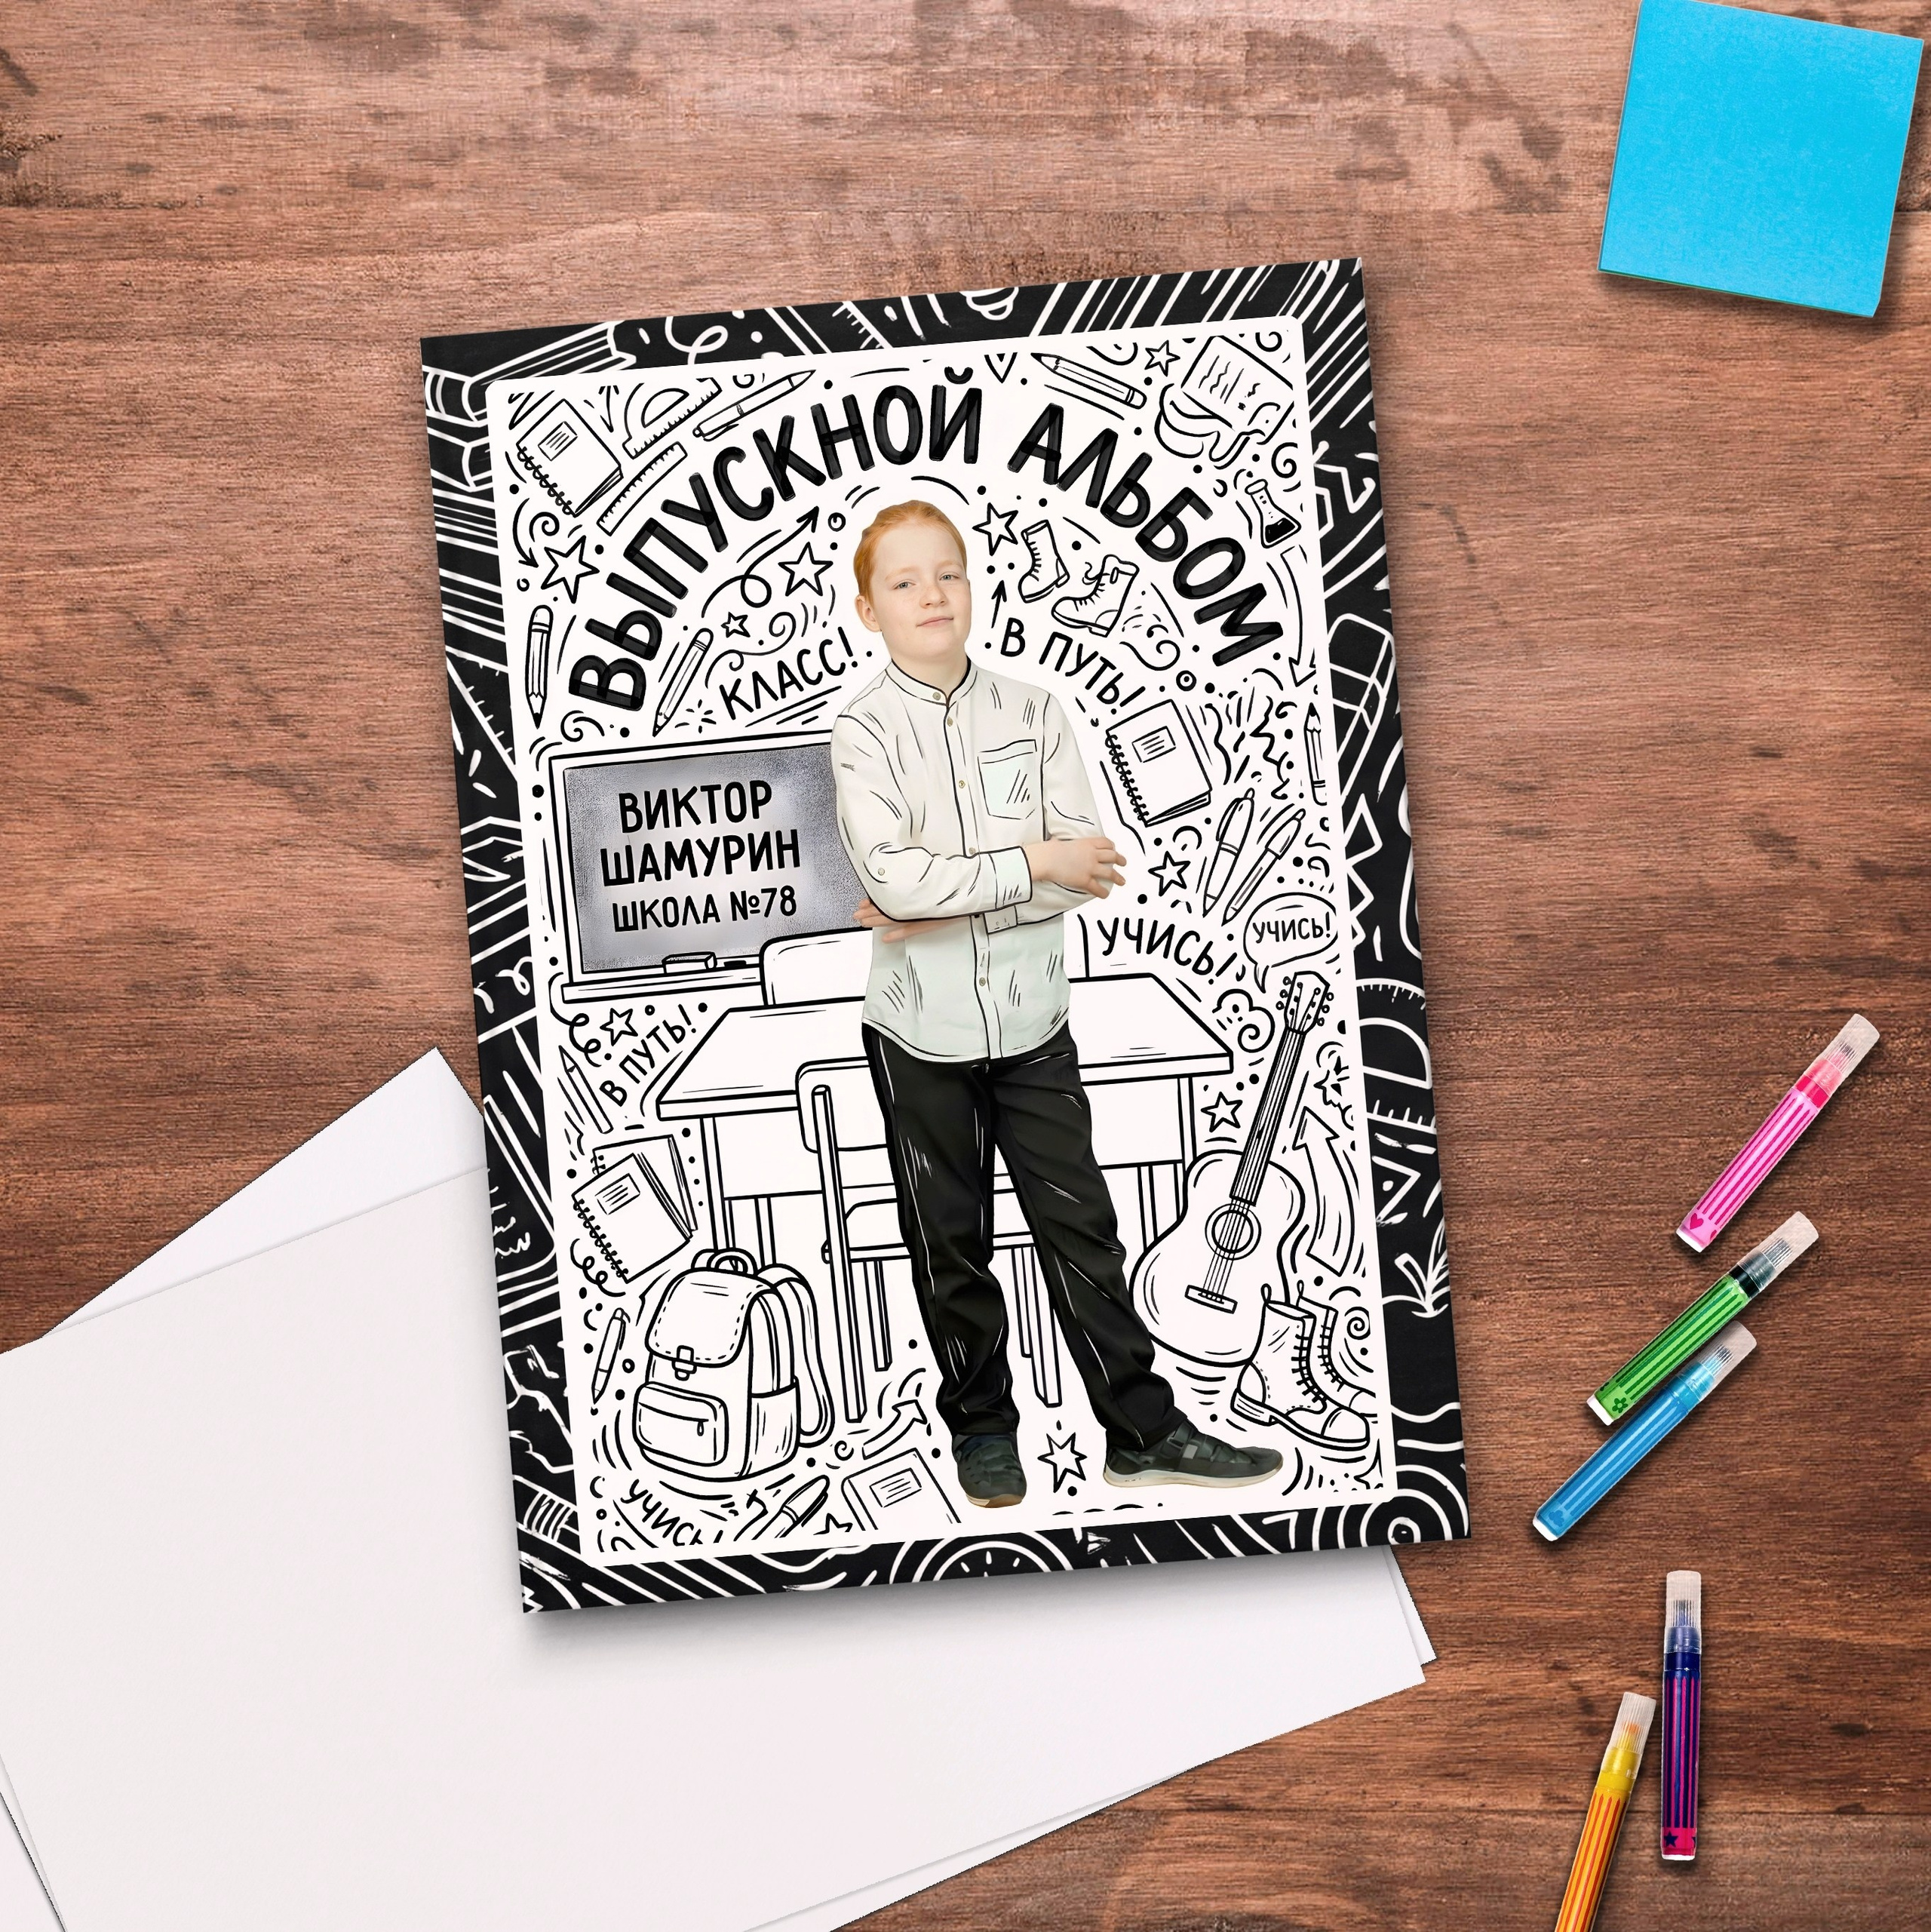 ВЫПУСКНОЙ АЛЬБОМ
КЛАСС!
В ПУТЬ!
ВИКТОР
ШАМУРИН
ШКОЛА №78
УЧИСЬ!
УЧИСЬ!
В ПУТЬ!
УЧИСЬ!